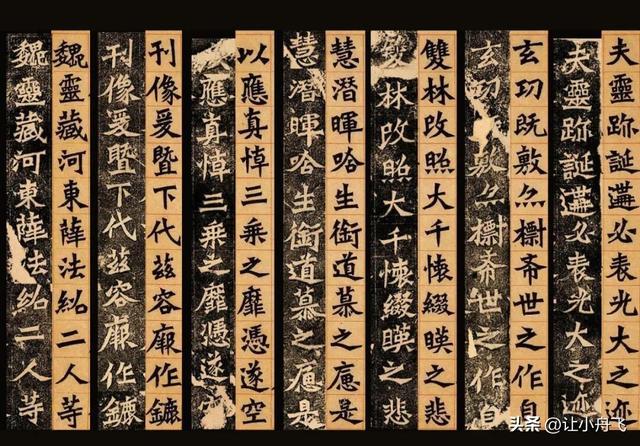 夫靈跡誕遘必表光大之迹
夫靈跡誕遘必表光大之迹
玄功既敷亦摽希世之作自
玄功敷亦摽希世之作自
雙林改照大千懷綴暎之悲
林改照大千懷綴暎之悲
慧潛暉哈生銜道慕之痛是
慧潛暉哈生銜道慕之痛是
以應真悼三乘之靡憑遂空
應真悼三乘之靡憑遂
刊像爰暨下代茲容厥作鑣
刊像爰暨下代茲容厥作鑣
魏靈藏河東薛法紹二人等
魏靈藏河東薛法紹二人等
头条 @让小舟飞